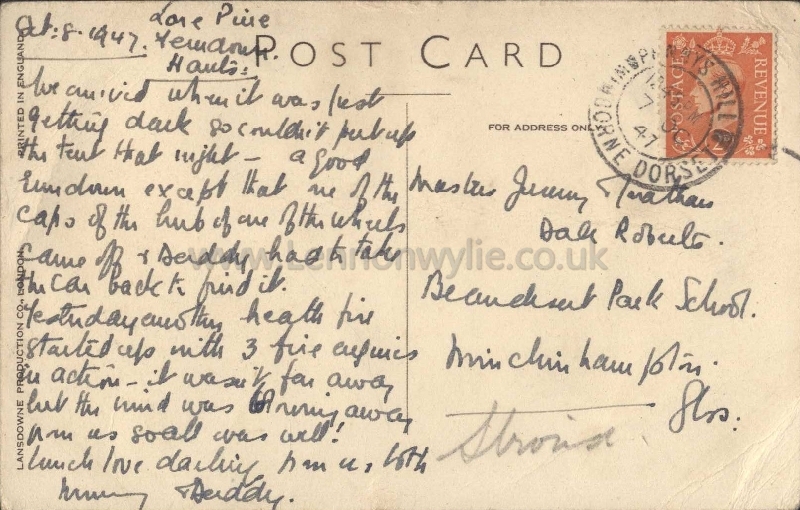 Oct: 8. 1947.
Lone Pine
Ferndown
Hants:
POST CARD
PRINTED IN ENGLAND
LANSDOWNE PRODUCTION CO., LONDON
FOR ADDRESS ONLY
We arrived when it was just
getting dark so couldn't put up
the tent that night – a good
rundown except that one of the
caps of the hub of one of the wheels
came off & Daddy had to take
the car back to find it.
Yesterday another heath fire
started up with 3 fire engines
in action – it wasn't far away
but the wind was blowing away
from us so all was well!
Much love darling from us both
Mummy & Daddy.
Master Jimmy &
Dale Roberts.
Beaudesert Park School.
Minchinhampton.
Glos:
Stroud.
POSTAGE
REVENUE
DORSET
47
www.Lennonwylie.co.uk